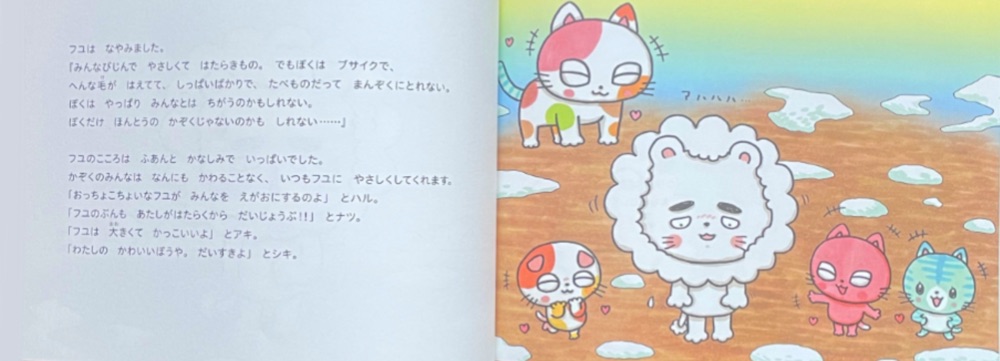 フユは なやみました。
『みんなびじんで やさしくて はたらきもの。 でもぼくは ブサイクで、
へんな毛が はえてて、 しっぱいばかりで、 たべものだって まんぞくにとれない。
ぼくは やっぱり みんなとは ちがうのかもしれない。
ぼくだけ ほんとうの かぞくじゃないのかも しれない……』
フユのこころは ふあんと かなしみで いっぱいでした。
かぞくのみんなは なんにも かわることなく、 いつもフユに やさしくしてくれます。
「おっちょこちょいなフユが みんなを えがおにするのよ」 とハル。
「フユのぶんも あたしがはたらくから だいじょうぶ!!」 とナツ。
「フユは 大きくて かっこいいよ」 とアキ。
「わたしの かわいいぼうや。 だいすきよ」 とシキ。
アハハハ…